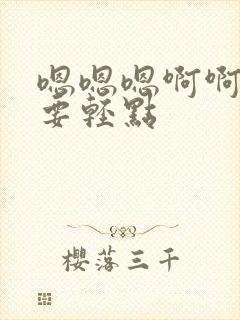 嗯嗯嗯啊啊
要輕點
櫻落三千